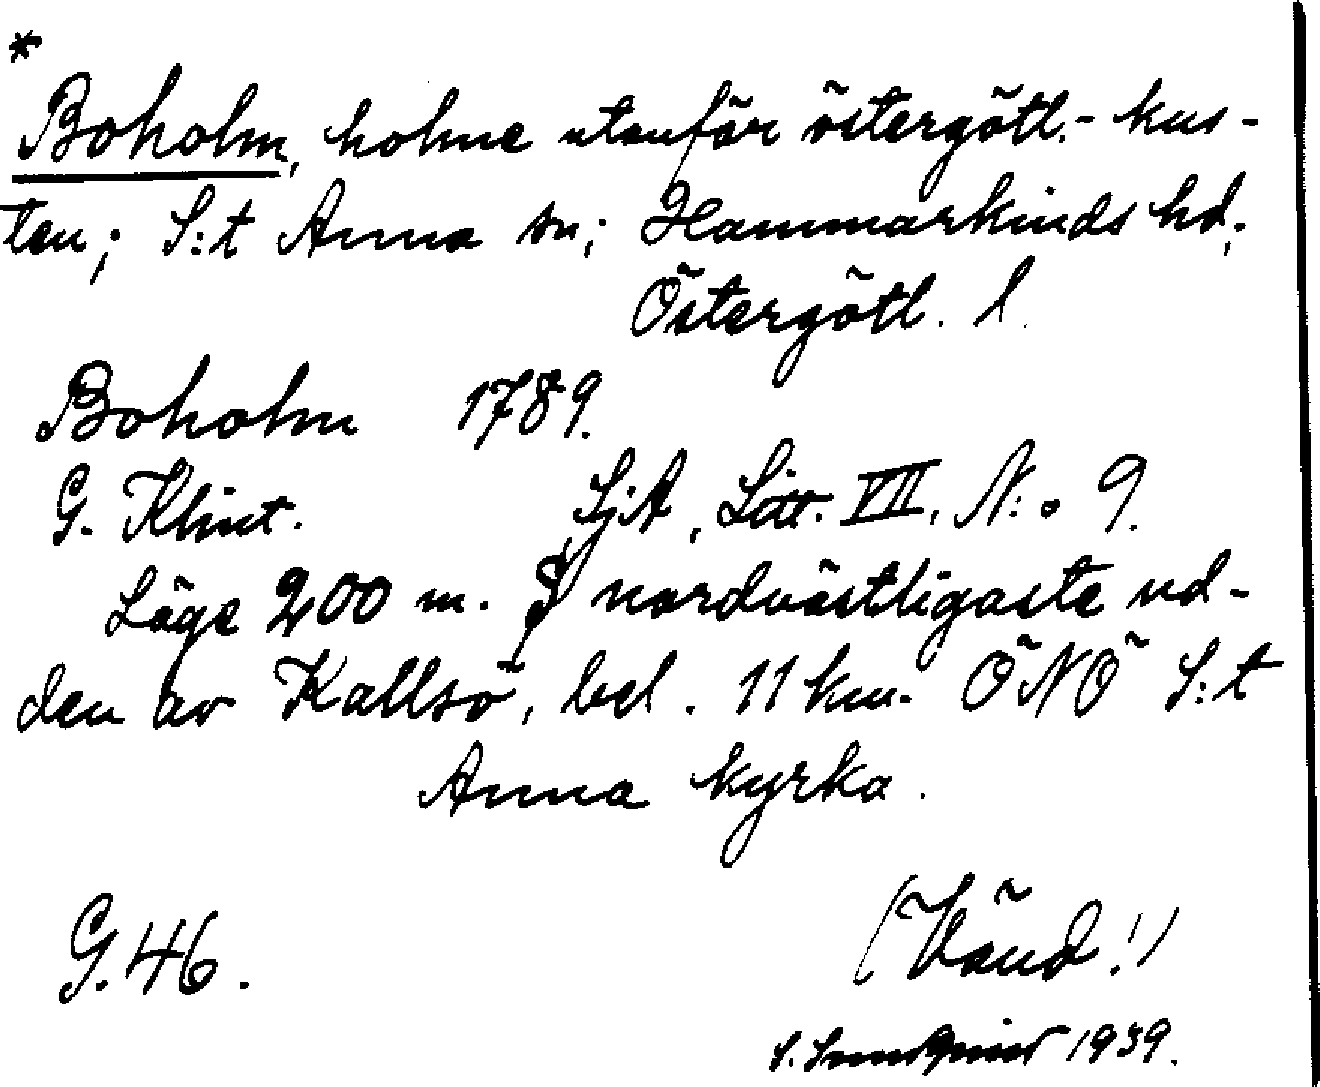 *
Boholm, holme utanför östergötl.- kus-
ten; S:t Anna sn; Hammarkinds hd,
Östergötl. l.
Boholm 1789.
G. Klint. SjA, Litt. VII, N:o 9.
Läge 200 m. S nordvästligaste ud-
den av Kallsö, bel. 11 km. ÖNÖ S:t
Anna kyrka.
G.46.
(Vänd!)
S. 1939.